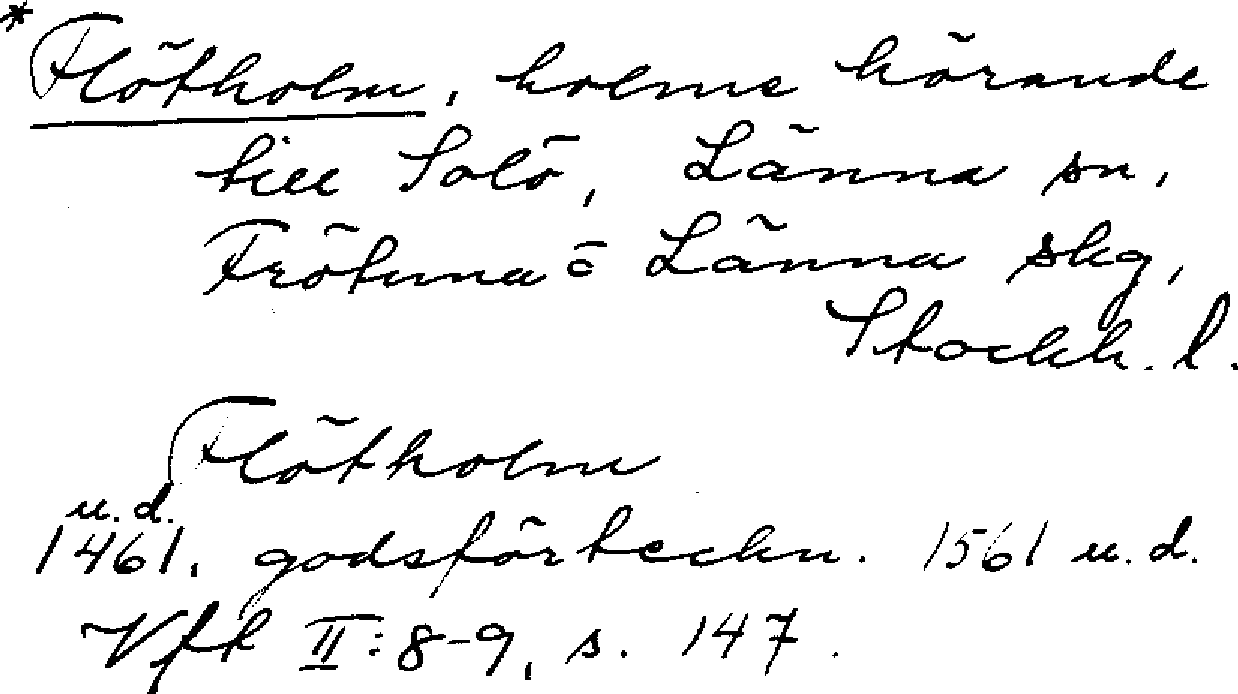 *Flötholm, holme hörande
till Solö, Länna sn,
Frötuna o Länna skg,
Stockh. l.
Flötholm
u.d.
1461. godsförteckn. 1561 u.d.
Vfk II:8-9, s. 147.